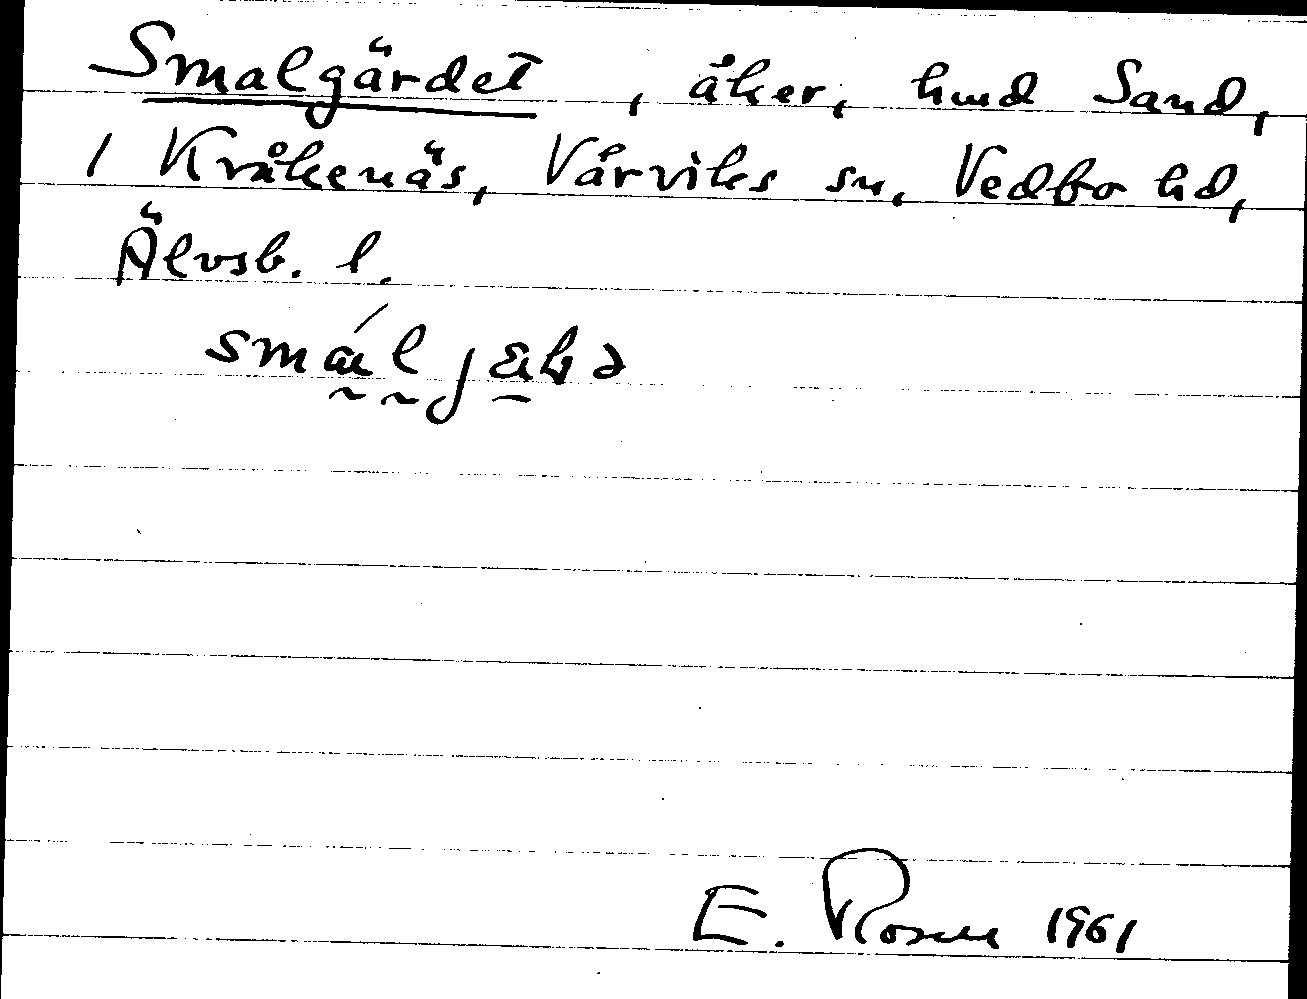 Smalgärdet, åker, hmd Sand,
1 Kråkenäs, Vårviks sn, Vedbo hd,
Älvsb. l.
E. Rosen 1961